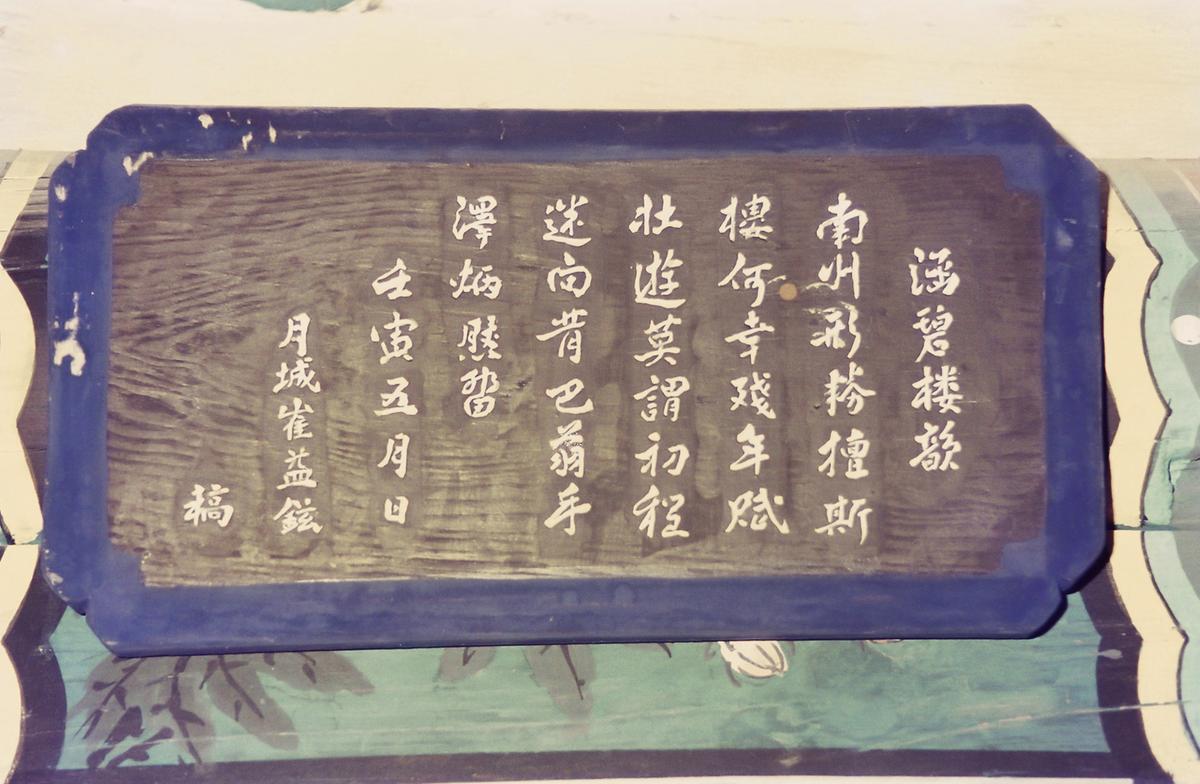 涵碧楼韵
南州形勝擅斯
樓何幸殘年賦
壯遊莫謂初程
迷向背巴翁手
澤炳然留
壬寅五月日
月城崔益鉉
稿